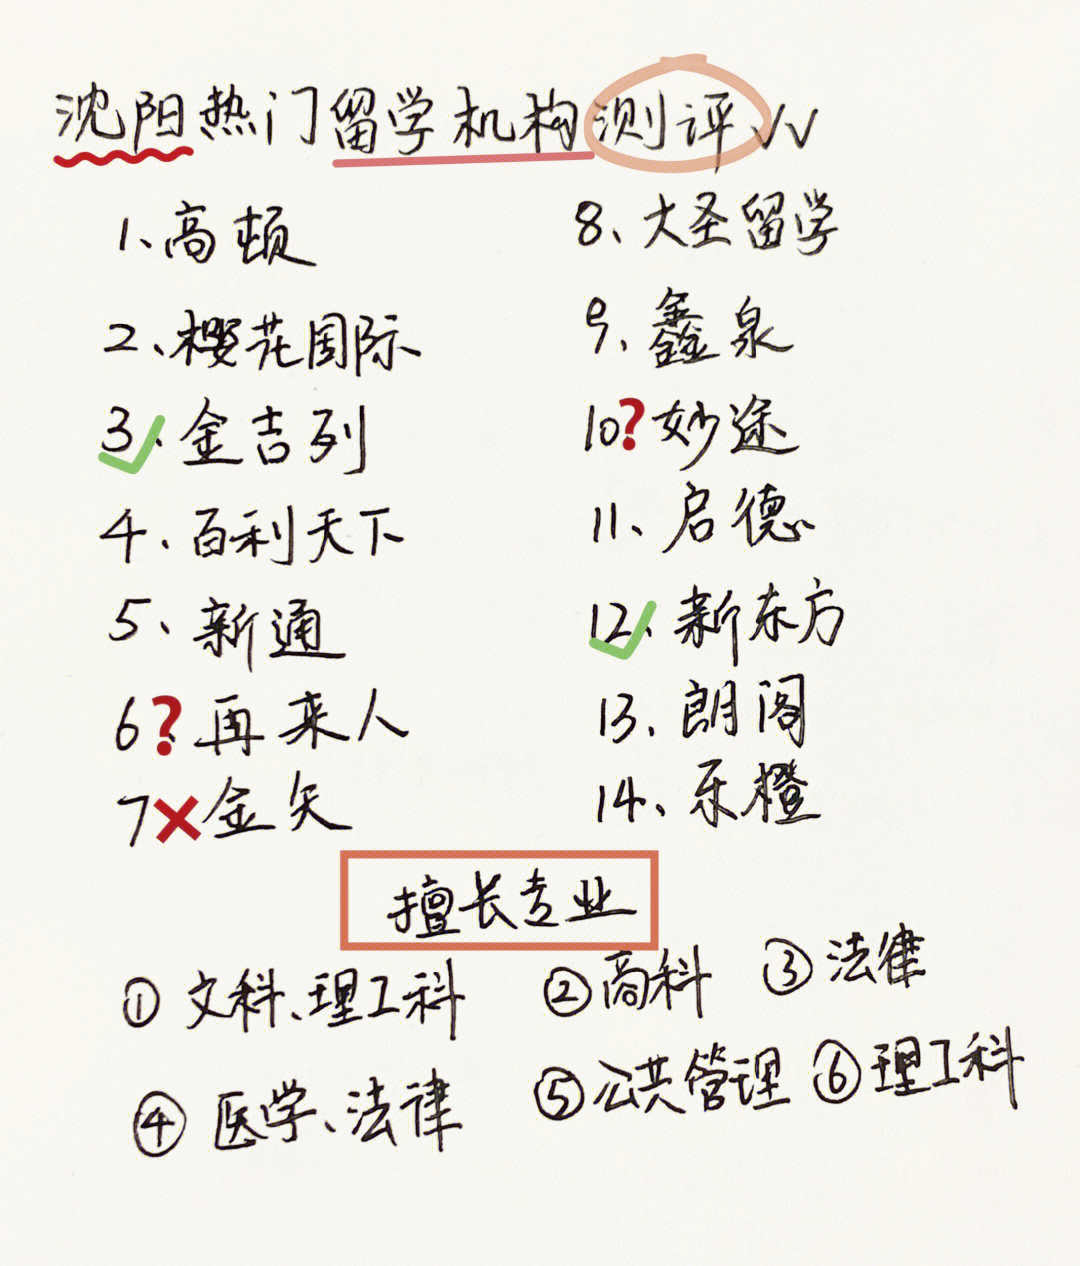 沈阳热门留学机构测评√√
1、高顿
2、樱花国际
3、金吉列
4、百利天下
5、新通
6?再来人
7×金矢
8、大圣留学
9、鑫泉
10?妙途
11、启德
12、新东方
13、朗阁
14、乐橙
擅长专业
① 文科、理工科 ②商科 ③法律
④ 医学、法律 ⑤公共管理 ⑥理工科